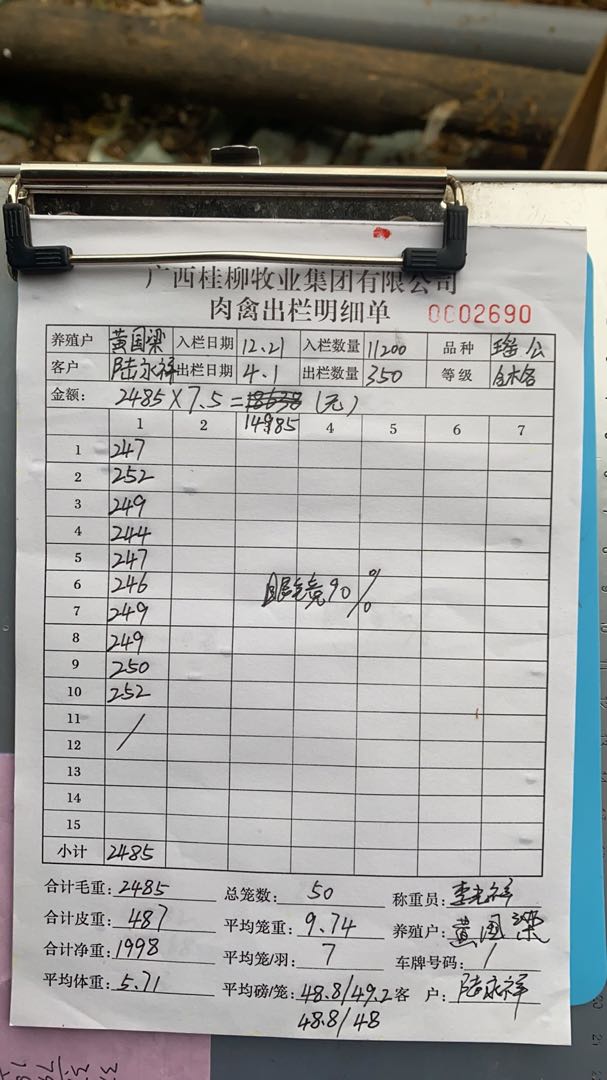 广西桂柳牧业集团有限公司
肉禽出栏明细单 0002690
养殖户 黄国梁 入栏日期 12.21 入栏数量 11200 品种 瑶公
客户 陆永祥 出栏日期 4.1 出栏数量 350 等级 合格
金额: 2485×7.5=18638(元)
14985
1 2 4 5 6 7
1 247
2 252
3 249
4 244
5 247
6 246 眼镜90%
7 249
8 249
9 250
10 252
11 /
12
13
14
15
小计 2485
合计毛重: 2485 总笼数: 50 称重员: 李光祥
合计皮重: 487 平均笼重: 9.74 养殖户: 黄国梁
合计净重: 1998 平均笼/羽: 7 车牌号码: /
平均体重: 5.71 平均磅/笼: 48.8/49.2 客 户: 陆永祥
48.8/48